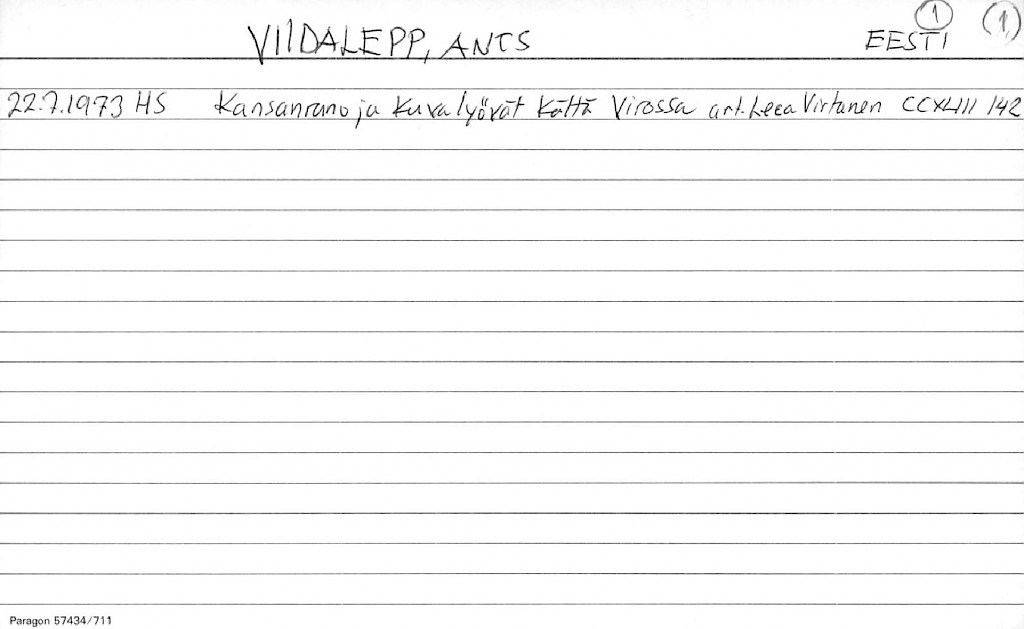 VIIDALEPP, ANTS EESTI 1 1
22.7.1973 HS Kansanruno ja kuva lyövät kättä Virossa art. Leea Virtanen CCXLIII 142
Paragon 57434/711